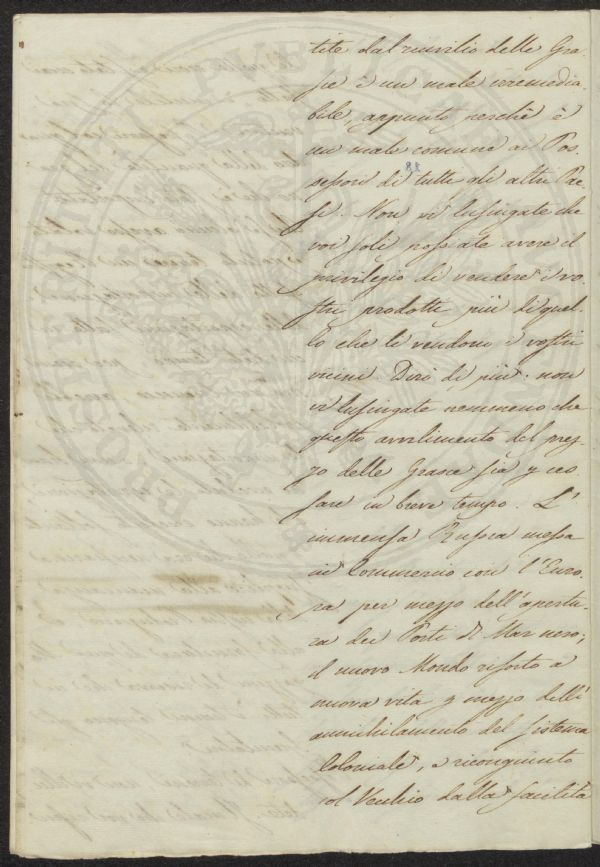 tite dal rinvilio delle Gra-
scie è un male irremedia-
bile, appunto perchè è
un male comune ai Pos-
sessori di tutti gli altri Pae-
si. Non vi lusingate che
voi soli possiate avere il
privilegio di vendere i vo-
stri prodotti più di quel-
lo che li vendono i vostri
vicini. Dirò di più: non
vi lusingate nemmeno che
questo avvilimento del prez-
zo delle Grasce sia p ces-
sare in breve tempo. L'
immensa Russia messa
in Commercio con l'Euro-
pa per mezzo dell'apertu-
ra dei Porti di Mar nero;
il nuovo Mondo risorto a
nuova vita p mezzo dell'
annichilamento del sistema
Coloniale, e ricongiunto
col Vecchio dalla facilità